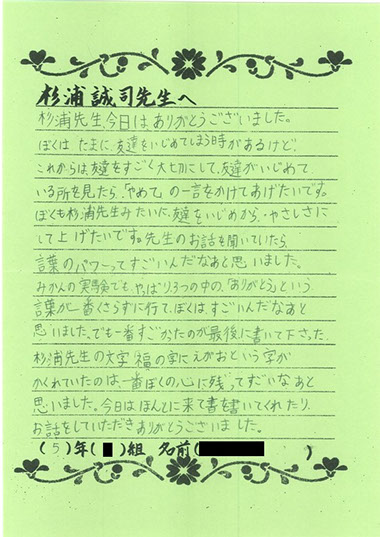 杉浦誠司先生へ
杉浦先生、今日はありがとうございました。
ぼくはたまに、友達をいじめてしまう時があるけど、
これからは友達をすごく大切にして、友達がいじめて
いる所を見たら、「やめて」の一言をかけてあげたいです。
ぼくも杉浦先生みたいに、友達をいじめから、やさしさに
して上げたいです。先生のお話を聞いていたら
言葉のパワーってすごいんだなあと思いました。
みかんの実験でも、やっぱり3つの中の、「ありがとう」という
言葉が一番くさらずに行て、ぼくは、すごいんだなあと
思いました。でも一番すごかったのが最後に書いて下さった
杉浦先生の文字福の字にえがおという字が
かくれていたのは、一番ぼくの心に残ってすごいなあと
思いました。今日はほんとに来て書を書いてくれたり、
お話をしていただきありがとうございました。
(5)年( )組 名前( )